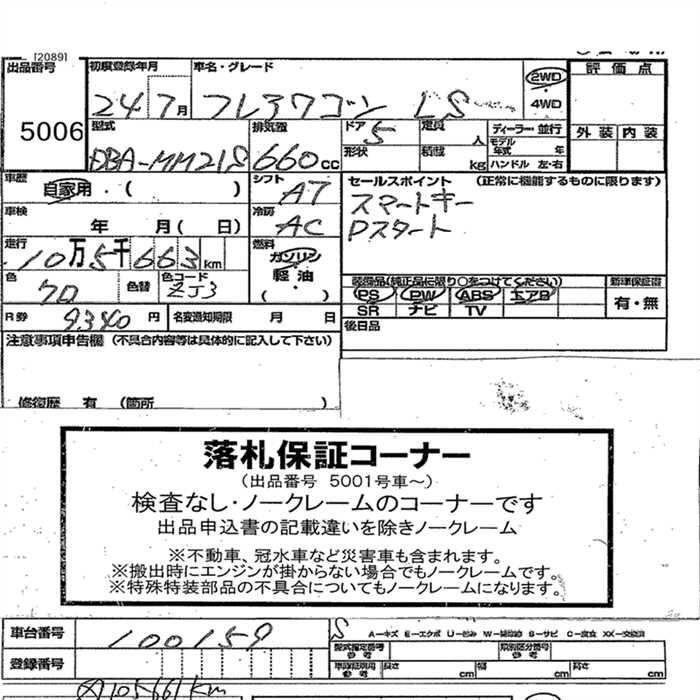 [2089]
出品番号 初度登録年月 車名・グレード 2WD 評価点
5006 24 7月 フレアワゴン LS 4WD
型式 排気量 ドア 5 定員 人 ディーラー・並行 外装 内装
DBA-MM21S 660cc 形状 積載 kg モデル年式 年 ハンドル 左・右
車歴 自家用・( ) シフト AT セールスポイント (正常に機能するものに限ります)
車検 年 月( 日) 冷房 AC スマートキー
Pスタート
走行 10万5千663km 燃料 ガソリン・軽油 ( )
装備品(純正品に限り○をつけてください) 新車保証書
色 クロ 色替 色コード ZJ3 PS PW ABS エアB 有・無
SR ナビ TV
R券 9340円 名変通知期限 月 日 後日品
注意事項申告欄 (不具合内容等は具体的に記入して下さい)
修復歴 有 (箇所 )
落札保証コーナー
(出品番号 5001号車~)
検査なし・ノークレームのコーナーです
出品申込書の記載違いを除きノークレーム
※不動車、冠水車など災害車も含まれます。
※搬出時にエンジンが掛からない場合でもノークレームです。
※特殊特装部品の不具合についてもノークレームになります。
車台番号 100159 S A-キズ E-エクボ U-凹み W-補修跡 S-サビ C-腐食 XX-交換済
型式指定番号 参考 類別区分番号 参考
登録番号 車検証明用 参考 長さ cm 幅 cm 高さ cm
105661km